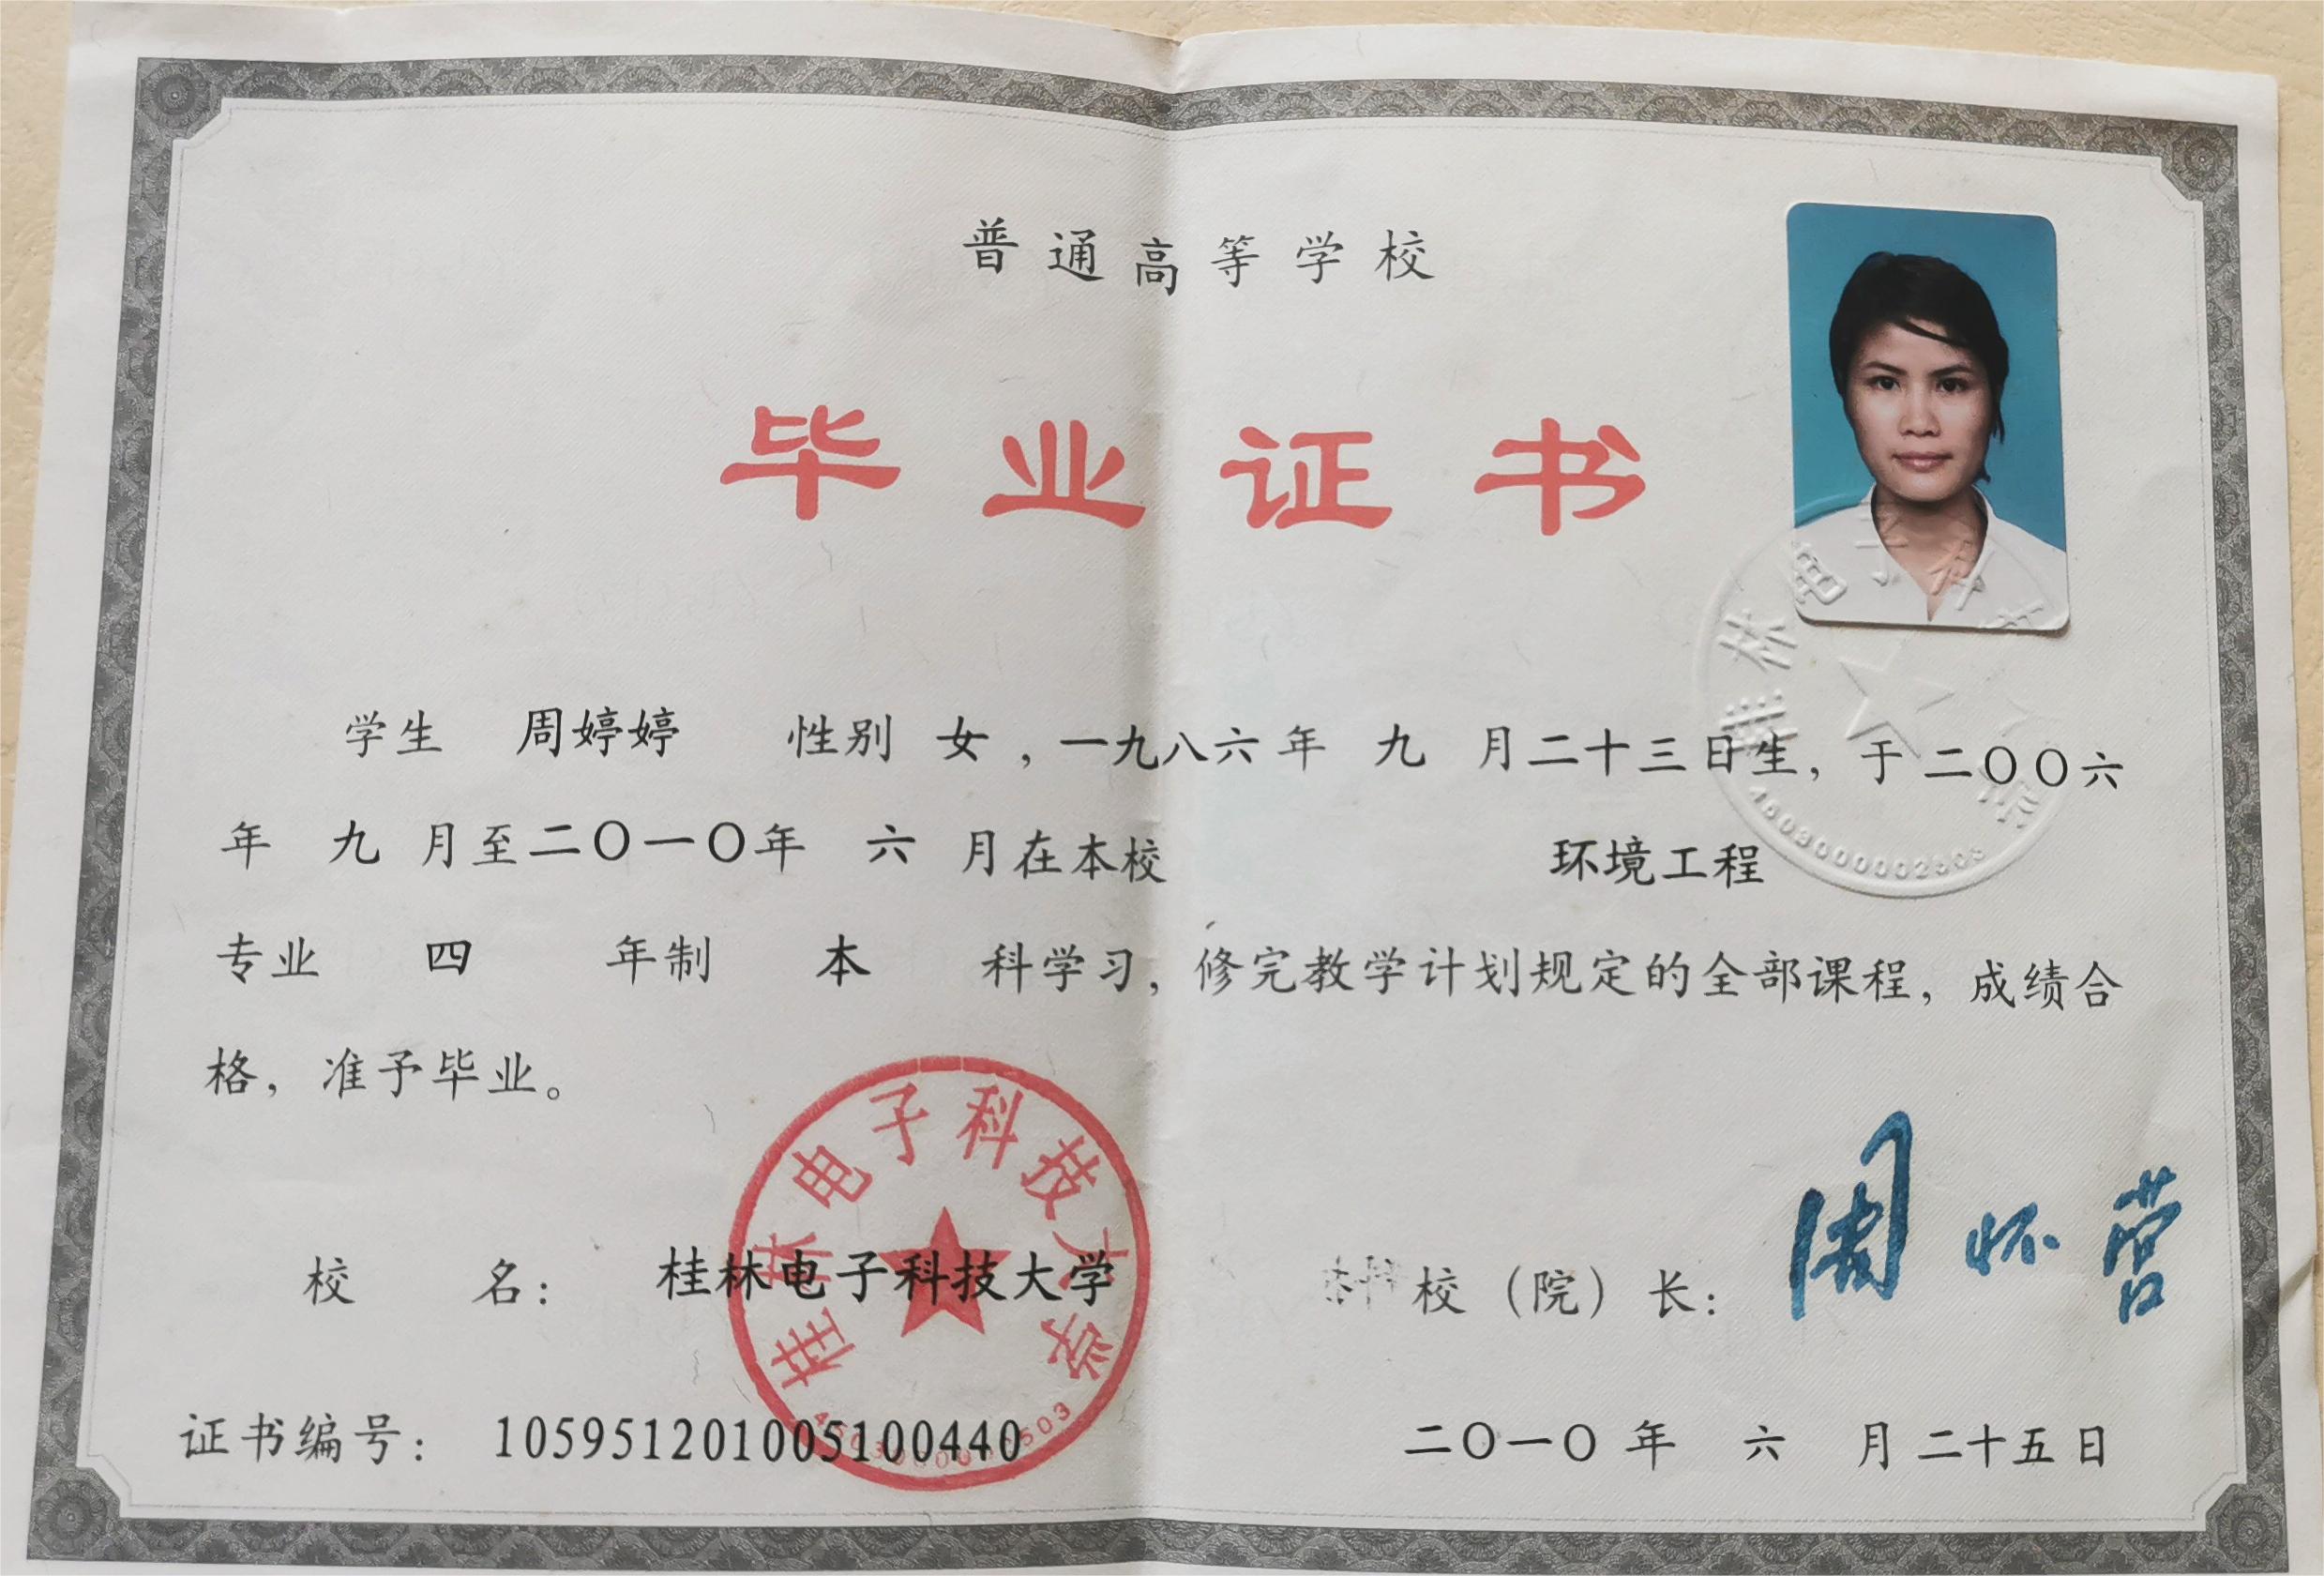 普通高等学校
毕业证书
学生 周婷婷 性别 女，一九八六年 九 月二十三日生，于二〇〇六
年 九 月至二〇一〇年 六 月在本校 环境工程
专业 四 年制 本 科学习，修完教学计划规定的全部课程，成绩合
格，准予毕业。
桂林电子科技大学
校 名： 桂林电子科技大学
校（院）长： 周怀营
证书编号： 105951201005100440
二〇一〇 年 六 月 二十五日